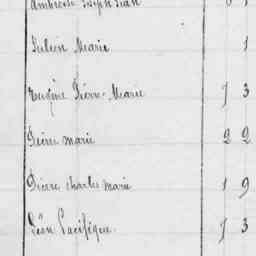 Ambroise Joseph Jean
Julien Marie 1
Eugène Pierre-Marie 7 3
Pierre marie 2 2
Pierre charles marie 1 9
Léon Pacifique 7 3